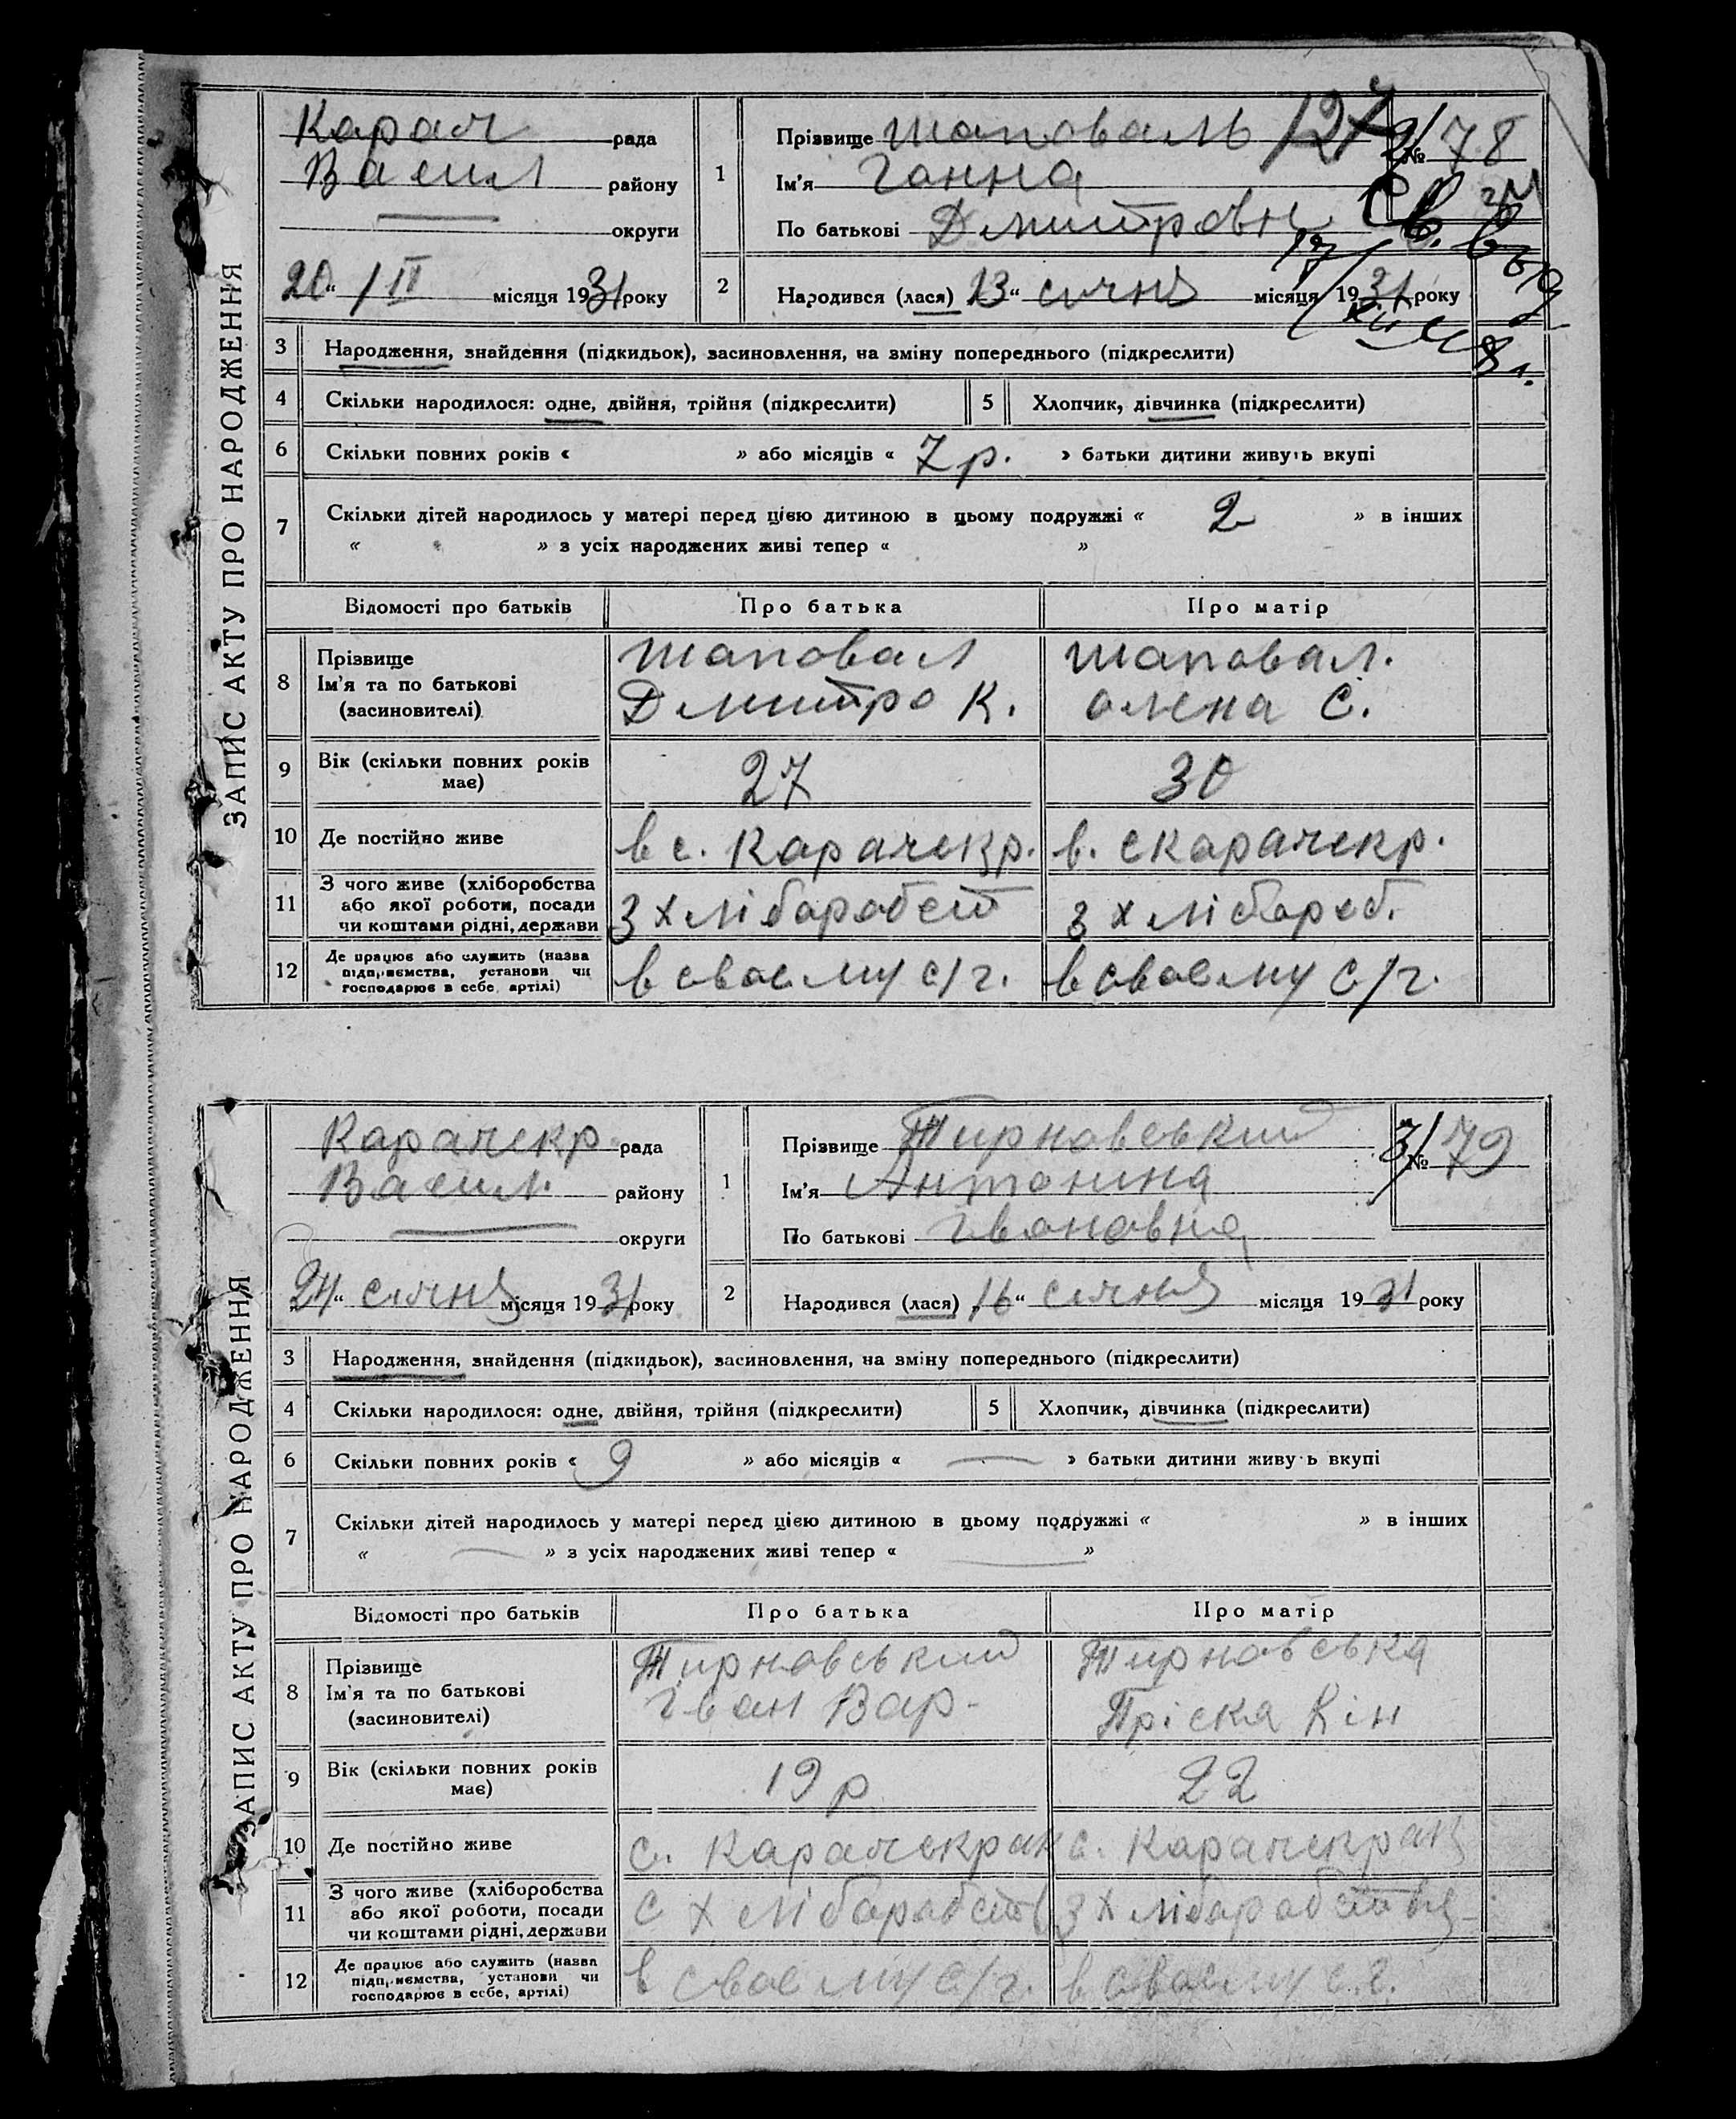 ЗАПИС АКТУ ПРО НАРОДЖЕННЯ
Карач рада
Васил району
округи
20 " / II місяця 1931 року
1 Прізвище Шаповаль
Ім'я Ганна
По батькові Дмитровн
127
2/ № 78
Св.
2 Народився (лася) 13 " січня місяця 1931 року
3 Народження, знайдення (підкидьок), засиновлення, на зміну попереднього (підкреслити)
4 Скільки народилося: одне, двійня, трійня (підкреслити) 5 Хлопчик, дівчинка (підкреслити)
6 Скільки повних років « » або місяців « 7 р. » батьки дитини живуть вкупі
7 Скільки дітей народилось у матері перед цією дитиною в цьому подружжі « 2 » в інших
« » з усіх народжених живі тепер « »
Відомості про батьків Про батька Про матір
8 Прізвище Ім'я та по батькові (засновителі) Шаповал Дмитро К. Шаповал. Олена С.
9 Вік (скільки повних років має) 27 30
10 Де постійно живе в с. Карачекр. в. с Карачекр.
11 З чого живе (хліборобства або якої роботи, посади чи коштами рідні, держави З хліборобст З хлібороб.
12 Де працює або служить (назва підприємства, установи чи господарює в себе, артілі) в своєму с/г. в своєму с/г.
ЗАПИС АКТУ ПРО НАРОДЖЕННЯ
Карачекр рада
Васил. району
округи
24 " січня місяця 1931 року
1 Прізвище Тирновський
Ім'я Антонина
По батькові Івановна
3/ № 79
2 Народився (лася) 16 " січня місяця 1931 року
3 Народження, знайдення (підкидьок), засиновлення, на зміну попереднього (підкреслити)
4 Скільки народилося: одне, двійня, трійня (підкреслити) 5 Хлопчик, дівчинка (підкреслити)
6 Скільки повних років « 9 » або місяців « — » батьки дитини живуть вкупі
7 Скільки дітей народилось у матері перед цією дитиною в цьому подружжі « » в інших
« — » з усіх народжених живі тепер « — »
Відомості про батьків Про батька Про матір
8 Прізвище Ім'я та по батькові (засиновителі) Тирновський Іван Вар- Тирновська Пріска Кін
9 Вік (скільки повних років має) 19 р 22
10 Де постійно живе с. Карачекрак с. Карачекрак
11 З чого живе (хліборобства або якої роботи, посади чи коштами рідні, держави с хліборобств з хліборобства
12 Де працює або служить (назва підприємства, установи чи господарює в себе, артілі) в своєму с/г. в своєму с.г.